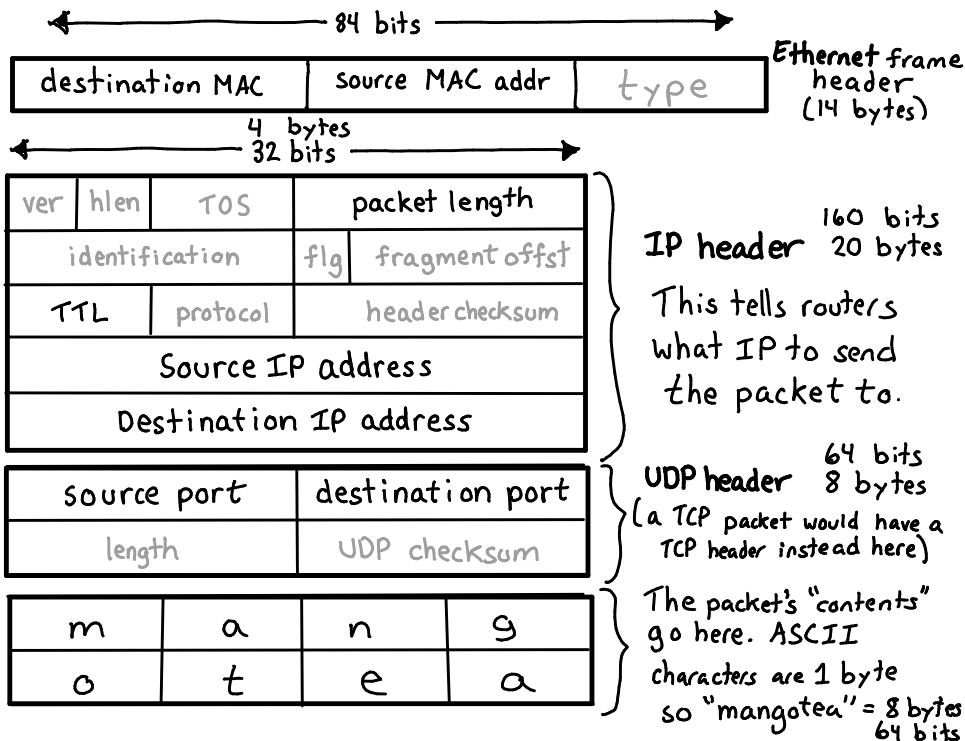 84 bits
destination MAC
source MAC addr
type
Ethernet frame
header
(14 bytes)
4 bytes
32 bits
ver
hlen
TOS
packet length
identification
flg
fragment offst
TTL
protocol
header checksum
Source IP address
Destination IP address
160 bits
IP header 20 bytes
This tells routers
what IP to send
the packet to.
source port
destination port
length
UDP checksum
64 bits
UDP header 8 bytes
(a TCP packet would have a
TCP header instead here)
m a n g
o t e a
The packet's "contents"
go here. ASCII
characters are 1 byte
so "mangotea" = 8 bytes
64 bits